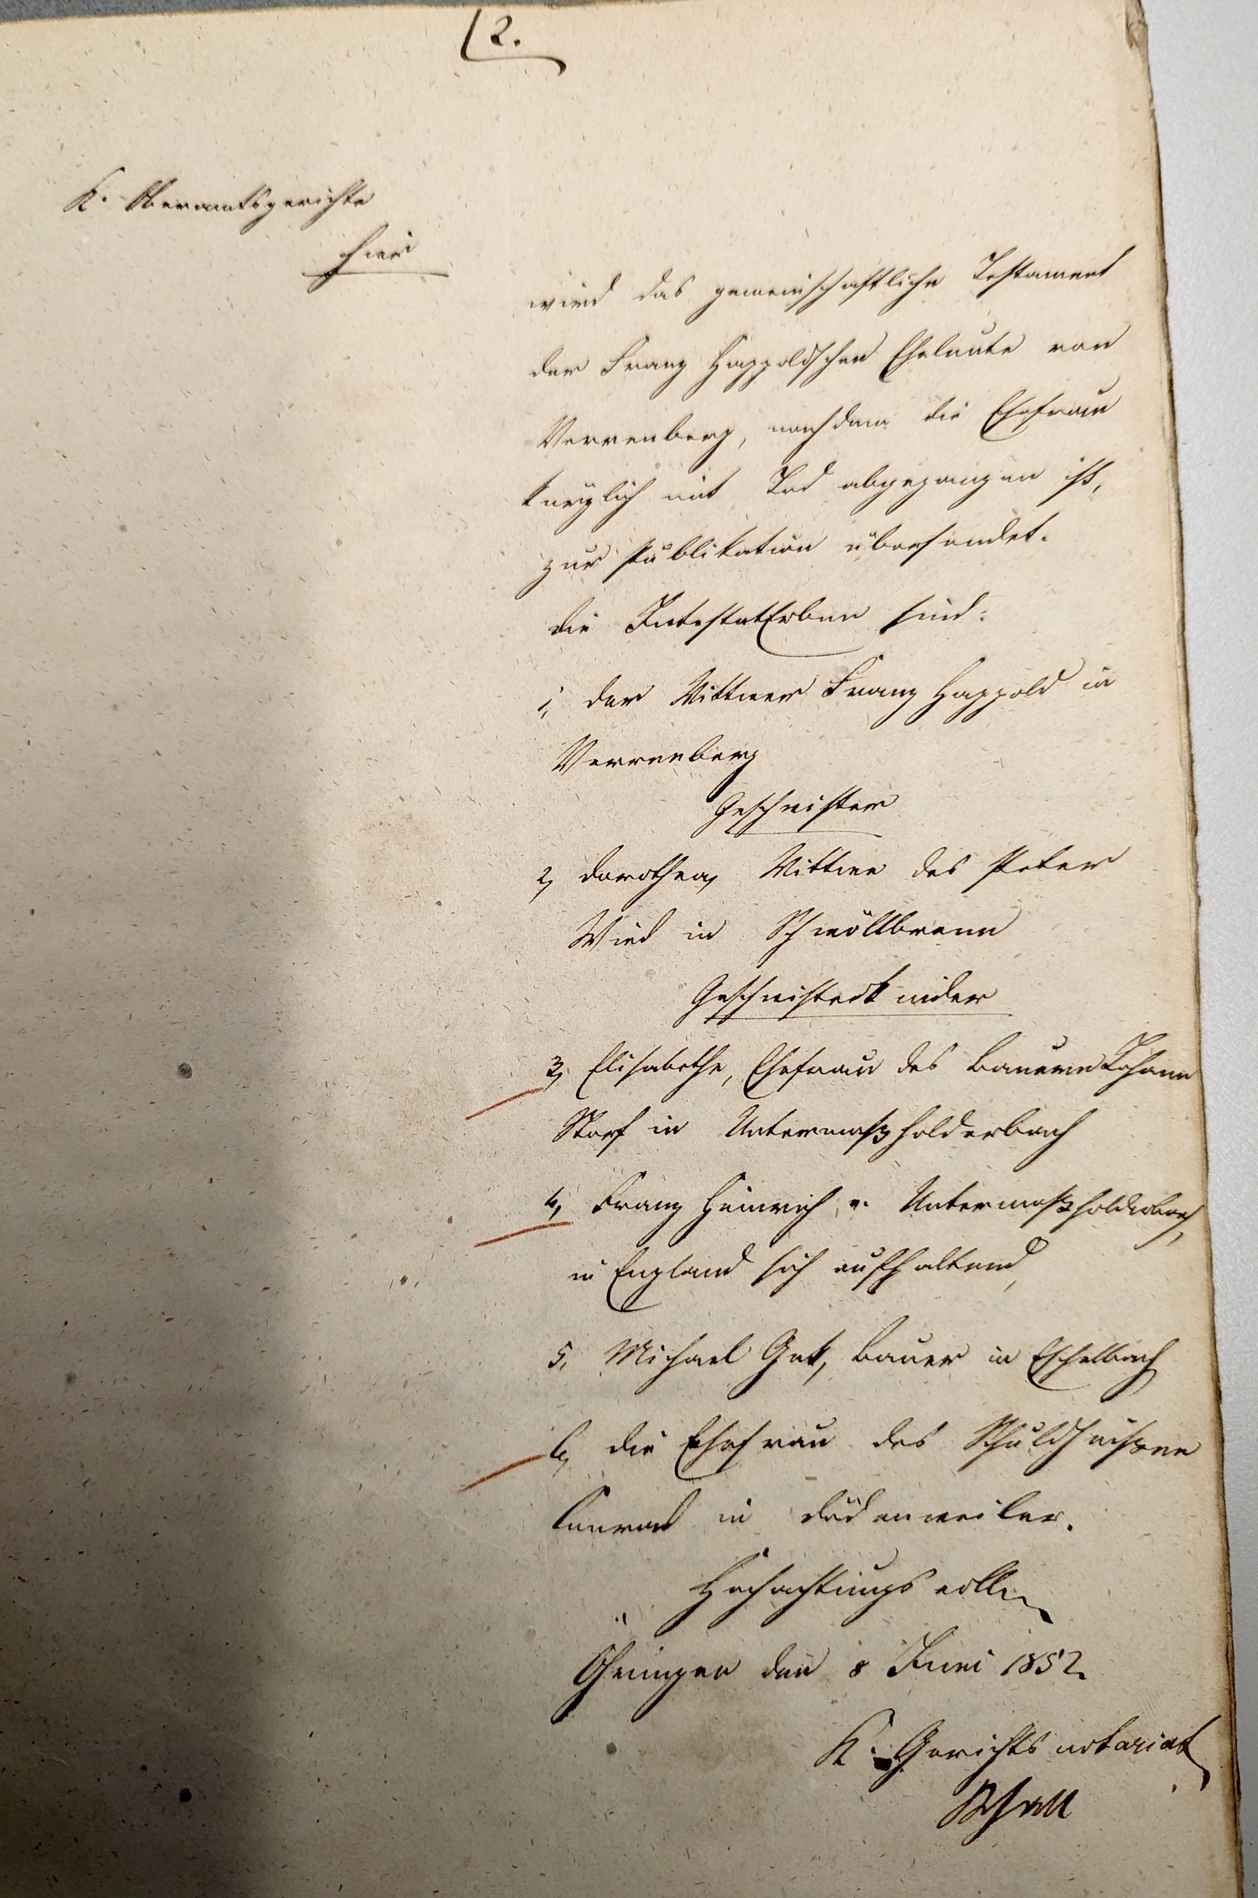 2.
K. Oberamtsgerichte
hier
wird das gemeinschaftliche Testament
der Franz Happoldschen Eheleute von
Verrenberg, nachdem die Ehefrau
kürzlich mit Tod abgegangen ist,
zur Publikation übersendet.
die Intestaterben sind:
1, der Wittwer Franz Happold in
Verrenberg
Geschwister
2, Dorothea, Wittwe des Peter
Wied in Schwöllbronn
Geschwisterkinder
3, Elisabethe, Ehefrau des Bauern Johann
in Untermaßholderbach
4, Franz Heinrich, v. Untermaßholderbach,
in England sich aufhaltend,
5, Michael Gut, Bauer in Eschelbach
6, die Ehefrau des Schuldheißen
Conrad in
Hochachtungsvoll
Öhringen den 8 Juni 1852.
K. Gerichtsnotariat
Schall